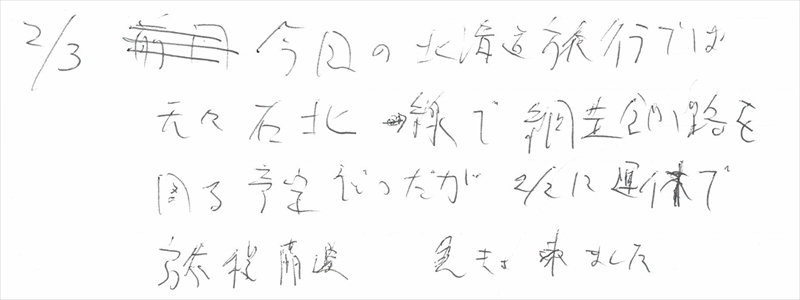 2/3 今回の北海道旅行では
元々石北線で網走釧路を
周る予定だったが 2/2に運休で
旅程崩壊 急きょ来ました